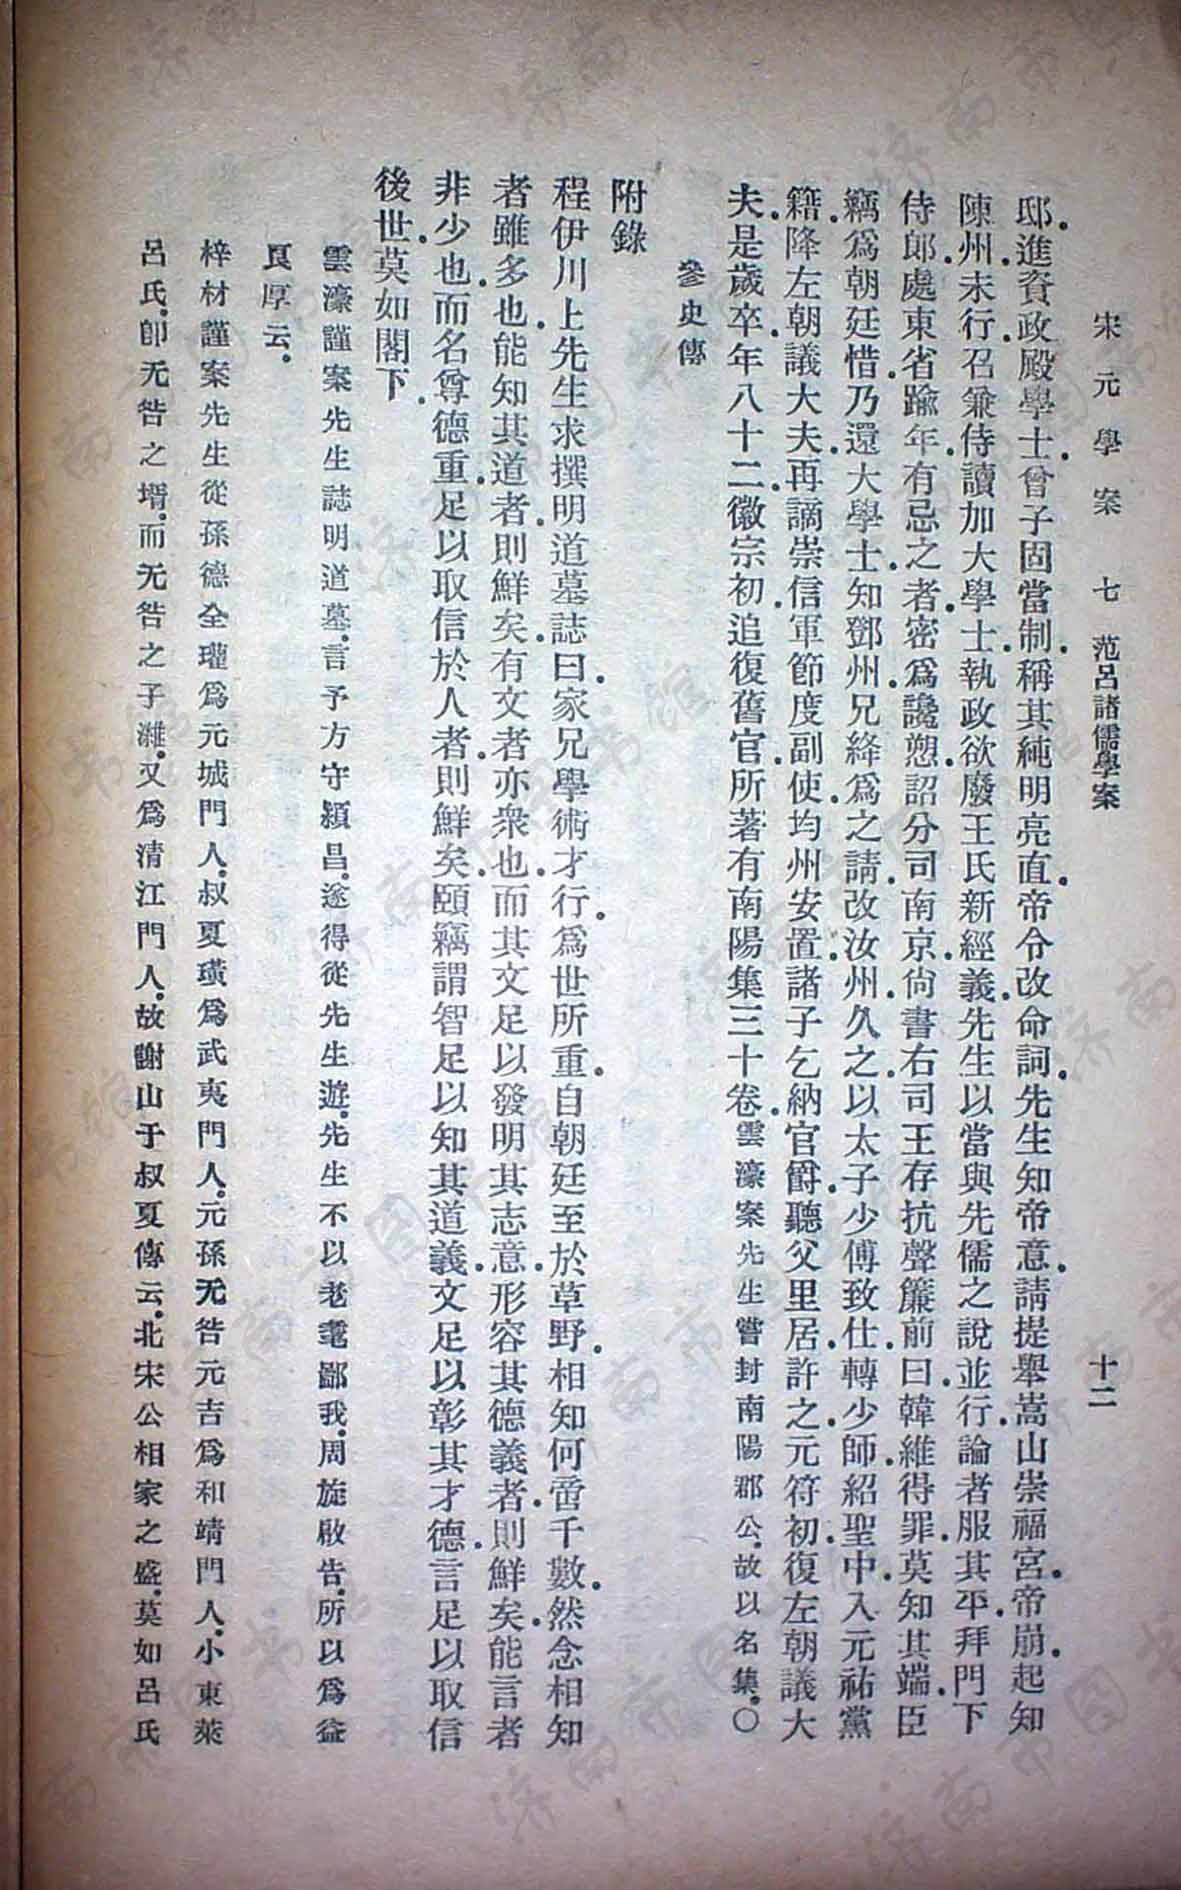 宋元學案 七 范呂諸儒學案 十二
邸進資政殿學士曾子固當制稱其純明亮直帝令改命詞先生知帝意請提舉嵩山崇福宮帝崩起知
陳州未行召兼侍讀加大學士執政欲廢王氏新經義先生以當與先儒之說並行論者服其平拜門下
侍郎處東省踰年有忌之者密爲讒愬詔分司南京尚書右司王存抗聲簾前曰韓維得罪莫知其端臣
竊爲朝廷惜乃還大學士知鄧州兄絳爲之請改汝州久之以太子少傅致仕轉少師紹聖中入元祐黨
籍降左朝議大夫再謫崇信軍節度副使均州安置諸子乞納官爵聽父里居許之元符初復左朝議大
夫是歲卒年八十二徽宗初追復舊官所著有南陽集三十卷雲濠案先生嘗封南陽郡公故以名集○
參史傳
附錄
程伊川上先生求撰明道墓誌曰家兄學術才行爲世所重自朝廷至於草野相知何啻千數然念相知
者雖多也能知其道者則鮮矣有文者亦衆也而其文足以發明其志意形容其德義者則鮮矣能言者
非少也而名尊德重足以取信於人者則鮮矣頤竊謂智足以知其道義文足以彰其才德言足以取信
後世莫如閣下
雲濠謹案先生誌明道墓言予方守潁昌遂得從先生遊先生不以老耄鄙我周旋啟告所以爲益
良厚云
梓材謹案先生從孫德全瓘爲元城門人叔夏璜爲武夷門人元孫无咎元吉爲和靖門人小東萊
呂氏卽无咎之壻而无咎之子淲又爲清江門人故謝山于叔夏傳云北宋公相家之盛莫如呂氏